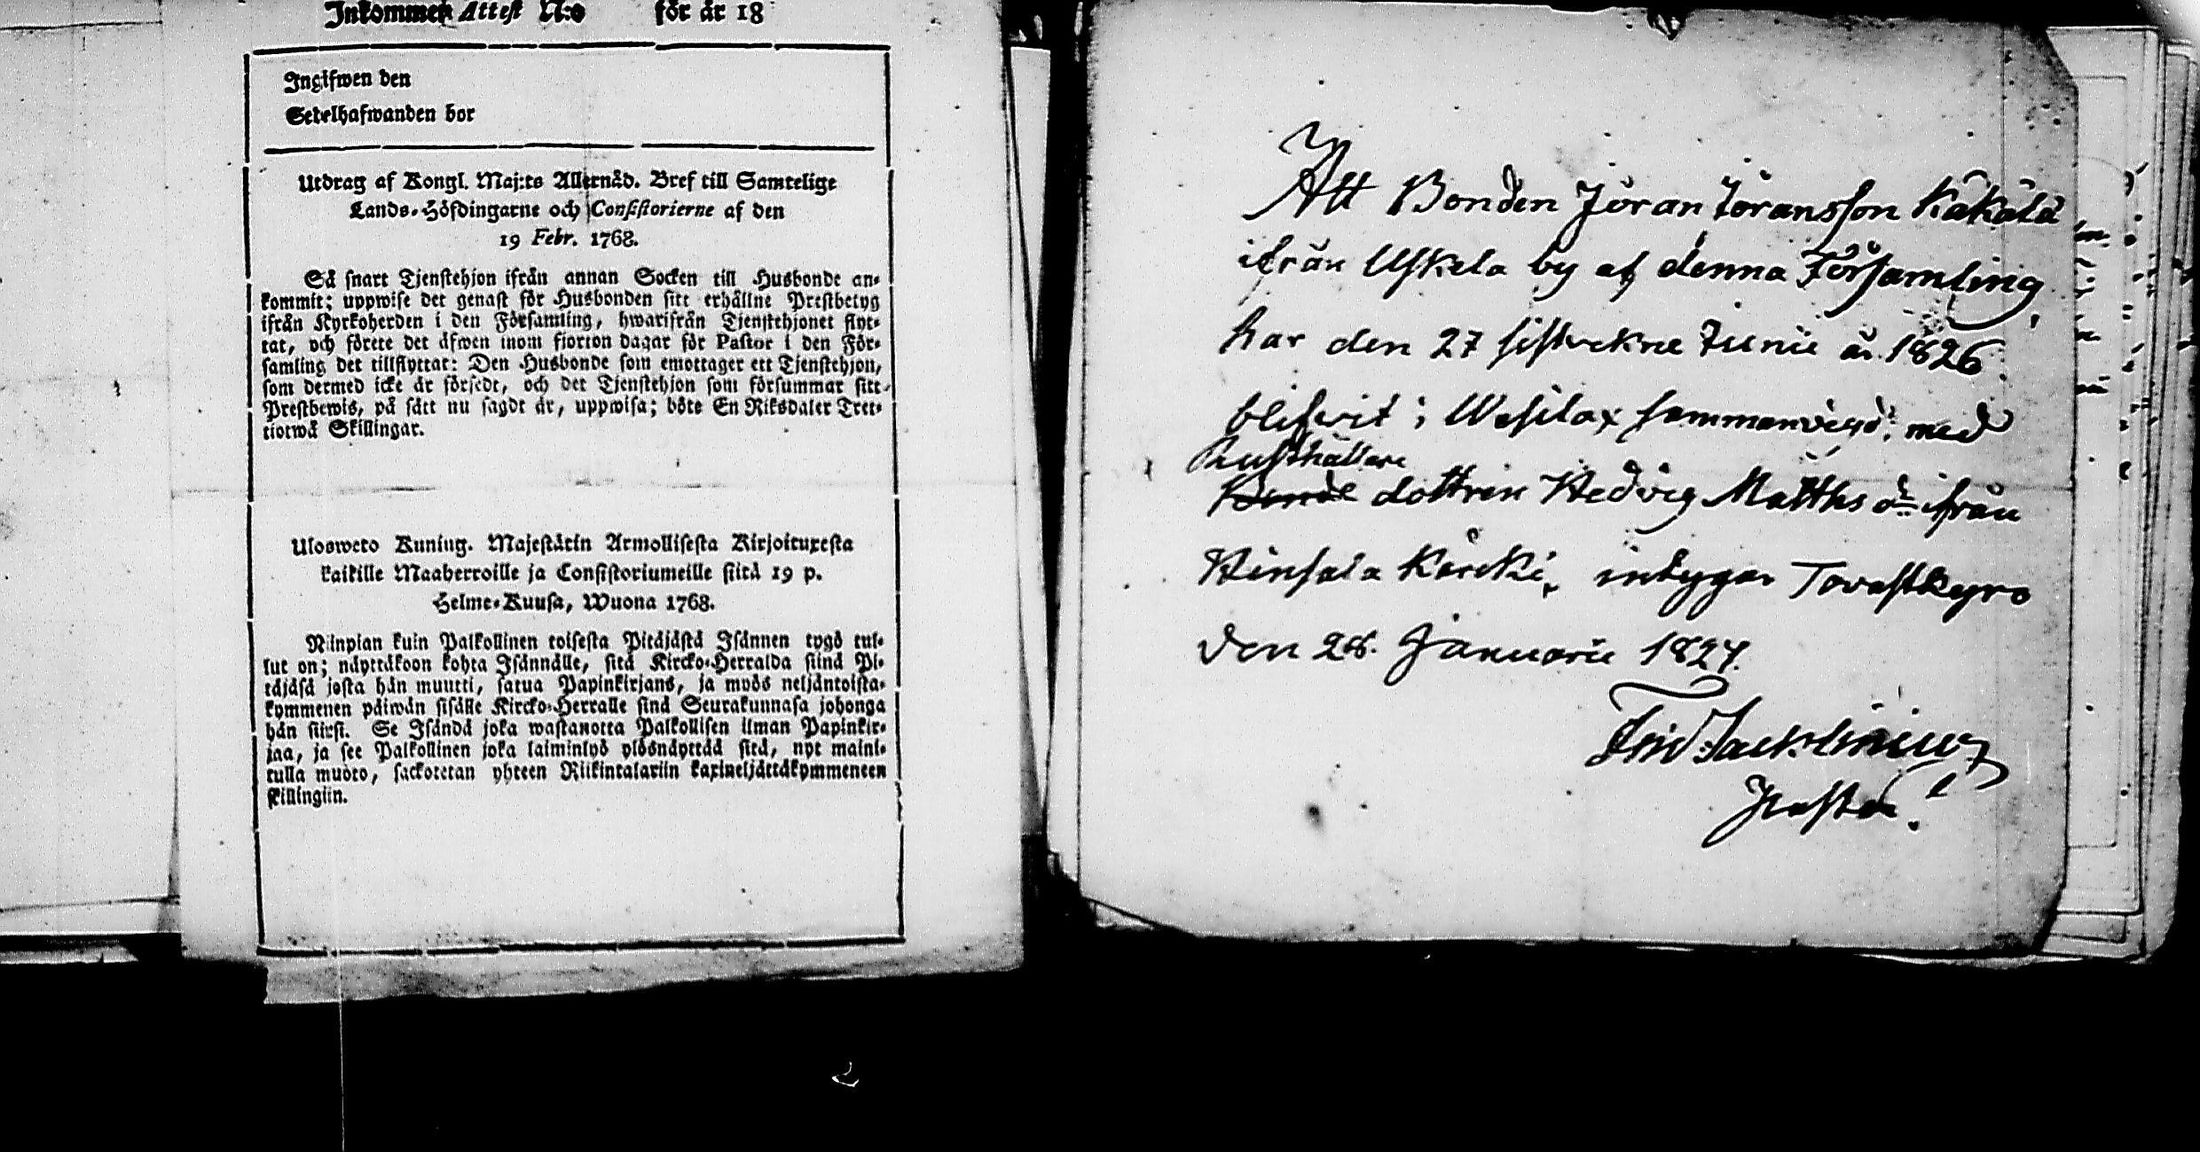 Inkommen Attest N:o för år 18
Ingifwen den
Sedelhafwanden bor
Utdrag af Kongl. Maj:ts Allernåd. Bref till Samtelige
Lands-Höfdingarne och Consistorierne af den
19 Febr. 1768.
Så snart Tjenstehjon ifrån annan Socken till Husbonde an-
kommit; uppwise det genast för Husbonden sitt erhållne Prestbetyg
ifrån Kyrkoherden i den Församling, hwarifrån Tjenstehjonet flyt-
tat, och förete det äfwen inom fjorton dagar för Pastor i den För-
samling det tillflyttat: Den Husbonde som emottager ett Tjenstehjon,
som dermed icke är försedt, och det Tjenstehjon som försummar sitt
Prestbewis, på sätt nu sagdt är, uppwisa; böte En Riksdaler Tret-
tiotwå Skillingar.
Ulosweto Kuning. Majestätin Armollisesta Kirjoituxesta
kaikille Maaherroille ja Consistoriumeille siitä 19 p.
Helme-Kuusa, Wuona 1768.
Niinpian kuin Palkollinen toisesta Pitäjästä Isännen tygö tul-
lut on; näyttäkoon kohta Isännälle, sitä Kircko-Herralda siinä Pi-
täjäsä josta hän muutti, satua Papinkirjans, ja myös neljäntoista-
kymmenen päiwän sisälle Kircko-Herralle siinä Seurakunnasa johonga
hän siirsi. Se Isändä joka wastanotta Palkollisen ilman Papinkir-
jaa, ja see Palkollinen joka laiminlyö ylösnäyttää sitä, nyt maini-
tulla muoto, sackotetan yhteen Riikintalariin kaxineljättäkymmeneen
skillingiin.
Att Bonden Jöran Jöransson Kåkålå
ifrån Uskela by af denna Församling,
har den 27 sistvekne Junii år 1826
blifwit i Wesilax sammanvigd med
Rusthållare
Bonde dottren Hedvig Matths dr ifrån
Hinsala Kärcki, intygar Tavastkyro
den 28. Januarii 1827.
Pastor.